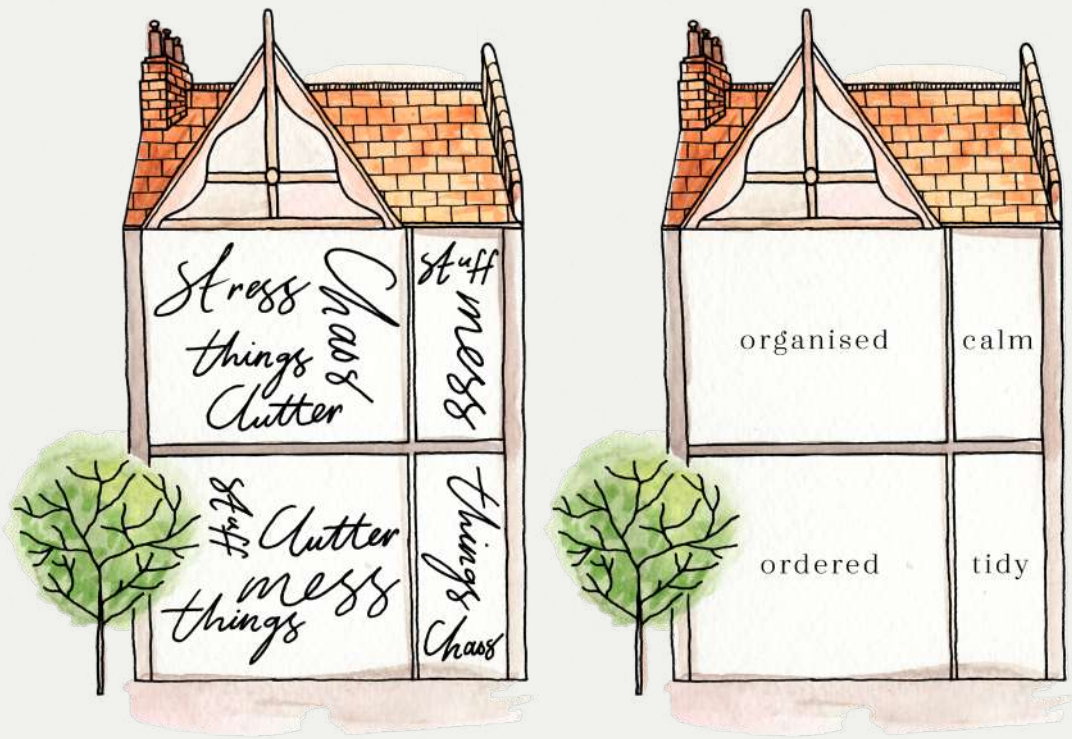 stress
Chaos
things
Clutter
stuff
mess
stuff
Clutter
mess
things
things
Chaos
organised
calm
ordered
tidy